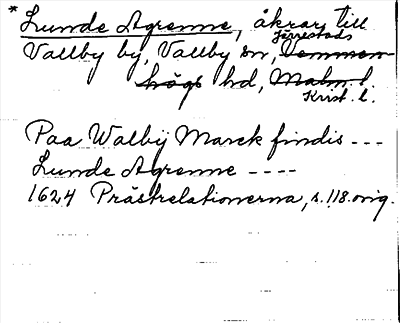 *Lunde Agrenne, åkrar till
Vallby by, Vallby sn, Järrestads Vemmen-
högs hd, Malm. l.
Krist. l.
Paa Walbÿ Marck findis ---
Lunde Agrenne ----
1624 Prästrelationerna, s. 118. orig.